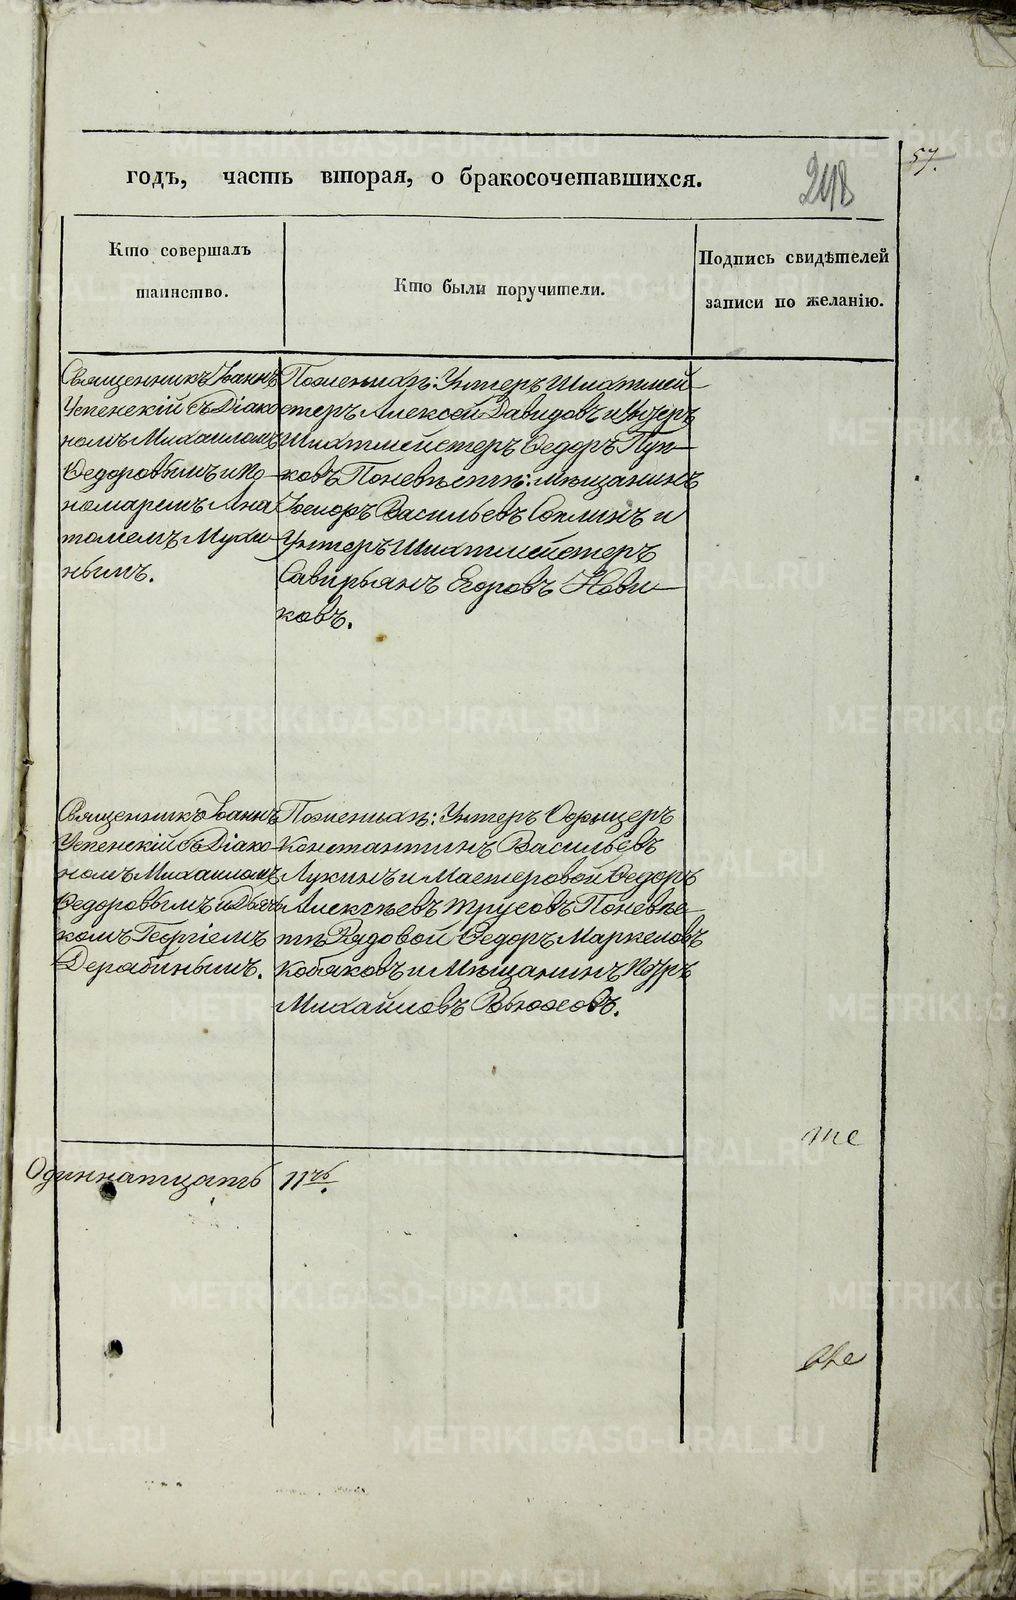 57.
годъ, часть вторая, о бракосочетавшихся.
248
Кто совершалъ
таинство.
Кто были поручители.
Подпись свидѣтелей
записи по желанію.
Священникъ Іоаннъ
Успенскій съ Діако
номъ Михаиломъ
Федоровымъ и По
номаремъ Ана
толіемъ Мухи
нымъ.
По женихѣ: Унтеръ Шихтмей
стеръ Алексѣй Давидовъ и Унтеръ
Шихтмейстеръ Федоръ Пуп
ковъ По невѣстѣ: мѣщанинъ
Васильевъ и
Унтеръ Шихтмейстеръ
Савирьянъ Егоровъ Нови
ковъ.
Священникъ Іоаннъ
Успенскій съ Діако
номъ Михаиломъ
Федоровымъ и Дьяч
комъ Георгіемъ
Дерябинымъ.
По женихѣ: Унтеръ Офицеръ
Константинъ Васильевъ
Лукинъ и Мастеровой Федоръ
Алексѣевъ Трусовъ По невѣс
тѣ Рядовой Федоръ Маркеловъ
Кобяковъ и Мѣщанинъ Петръ
Михайловъ Вьюховъ.
Одиннатцать
11ть.